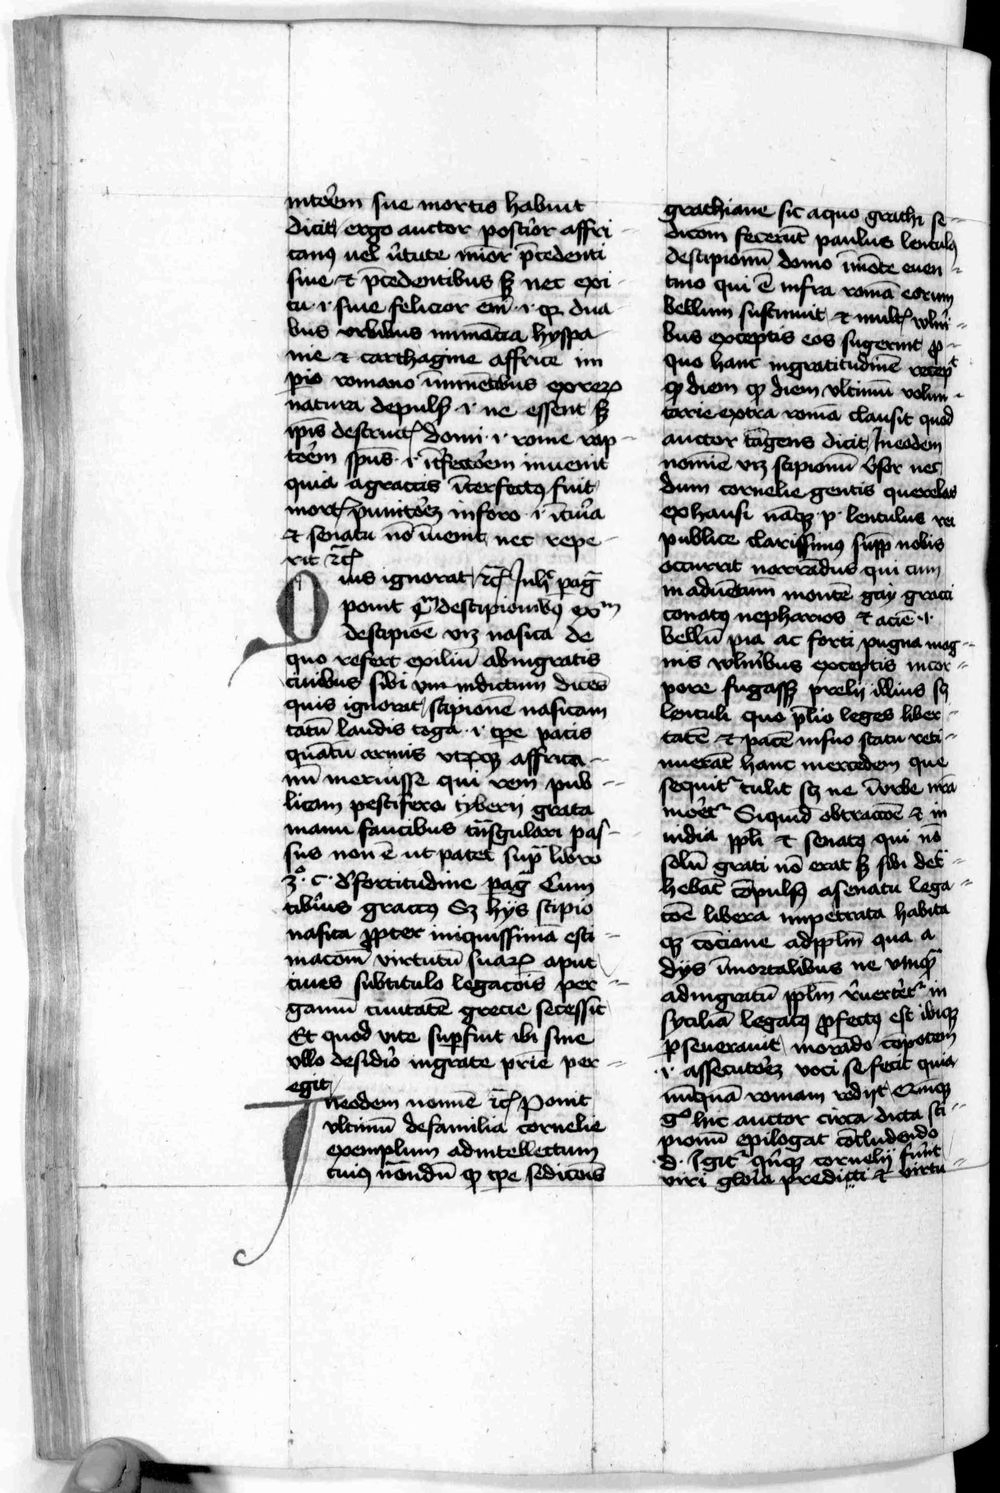 intorem sue mortis habuit
dicit ergo auctor posterior affri-
canus uel v̄tute minor p̄cedenti
siue et p̄cedentibus sꝫ nec exi-
tu .i. fine felicior em̄ .i. qꝫ dua
bus urbibus numācia hyspa
nie et carthagine affrice im
perio romano im̄inētibus
natura depulsꝭ .i. ne essent sꝫ
ip̄is destructꝭ domi .i. rome rap-
torem spūs .i. īterfectorem inuenit
quia agraccis īterfectꝰ fuit
mortꝭ punitorē inforo .i. ī curia
et senatu nō inuenit nec repe-
rit ꝛc̄
Quis ignorat ꝛc̄ In hꝰ pag̃
ponit descipionibꝰ exm
descipiōe vꝫ nasica de
quo refert exiliū abingratis
ciuibus sibi indictum dicēs
quis ignorat scipionē nasicam
tātū laudis toga .i. tp̄e pacis
quātū armis vtrūqꝫ affrica-
nū meruisse qui rem pub-
licam pestifera tyberij gracca
manu faucibus strāgulari pas-
sus non ē ut patet supͣ libro
3º. c. d̄fortitudine pag̃ Cum
tiberius graccꝰ Sꝫ hijs scipio
nasica ꝓpter iniquissimā esti-
macōem virtutū suaꝝ aput
ciues subtitulo legacōis per-
gamū ciuitatē grecie secessit
Et quod vite supfuit ibi sine
vllo desiderio ingrate pr̄ie per-
egit
Ineodem nomīe ꝛc̄ Ponit
vltimū defamilia cornelie
exemplum adintellectum
cuiꝰ nōndū qꝫ tp̄e sedicōis
grachiane sic aquo grachi se-
dicōm fecerūt paulus lentulꝰ
descipionū domo īmōte auen-
tino qui ē infra romā eorum
bellum sustinuit et multꝭ vulneri-
bus exceptis eos fugerint ꝓ-
quo hanc ingratitudinē recepͭ
qꝫ diem qꝫ diem vltimū volun-
tarie extra romā clausit quod
auctor tāgens dicit Ineodem
nomīe vꝫ scipionū nec
dum cornelie gentis querelas
exhausi nāqꝫ p. lentulus rei
publice clarissimus nobis
occurrit norrādus qui cum
in aduētinum montē gay gracci
conatꝰ nepharios et aciē .i.
bellū pia ac forti pugna mag-
nis vulneribus exceptis incor-
pore fugassꝫ prelij illius sꝫ
lentuli quo p̄lio leges liber-
tatē et pacē insuo statu reti-
nuerat hanc mercedem que
sequitͬ tulit sꝫ ne īurbe nr̄a
moretͬ Siquid obtraccōe et in
uidia ppl̄i et senatꝰ qui nō
solū grati nō erāt sꝫ sibi det-
hebāt cōpulsꝰ asenatu lega-
cōe libera impetrata habita
qꝫ cōcione adppl̄m qua a
dijs īmortalibus ne vmqͣ
adingratū ppl̄m reuerteretͬ in
syciliā legatꝰ ꝓfectꝰ est ibiqꝫ
ꝑseuerauit morādo cōpotem
.i. assecutorē voci se fecit quia
nūquā romam redijt Quinqꝫ
gº hic auctor circa dicta sci-
pionū epilogat cōcludendo
.d. Igitͬ quinqꝫ cornelij fuerūt
viri gloria predicti et virtu-